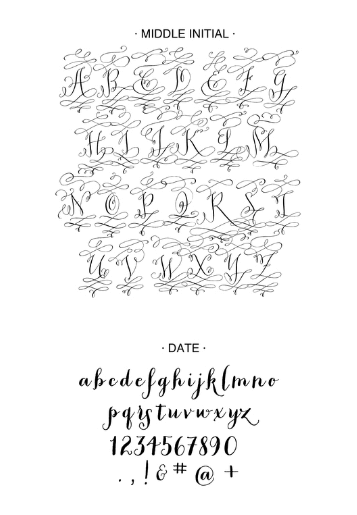 · MIDDLE INITIAL ·
A B C D E F G
H I J K L M
N O P Q R S T
U V W X Y Z
· DATE ·
abcdefghijklmno
pqrstuvwxyz
1234567890
. , ! & # @ +